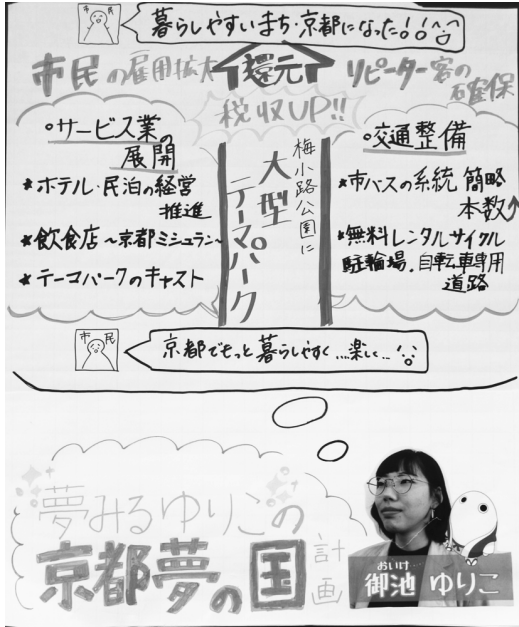 市民
暮らしやすいまち・京都になった!!
市民の雇用拡大
還元
リピーター客の
確保
税収UP!!
・サービス業の
展開
★ホテル・民泊の経営
推進
★飲食店〜京都ミシュラン〜
★テーマパークのキャスト
梅小路公園に
大型
テーマパーク
・交通整備
★市バスの系統 簡略
本数↑
★無料レンタルサイクル
駐輪場・自転車専用
道路
市民
京都でもっと暮らしやすく…楽しく…
夢みるゆりこの
京都夢の国
計画
おいけ
御池 ゆりこ